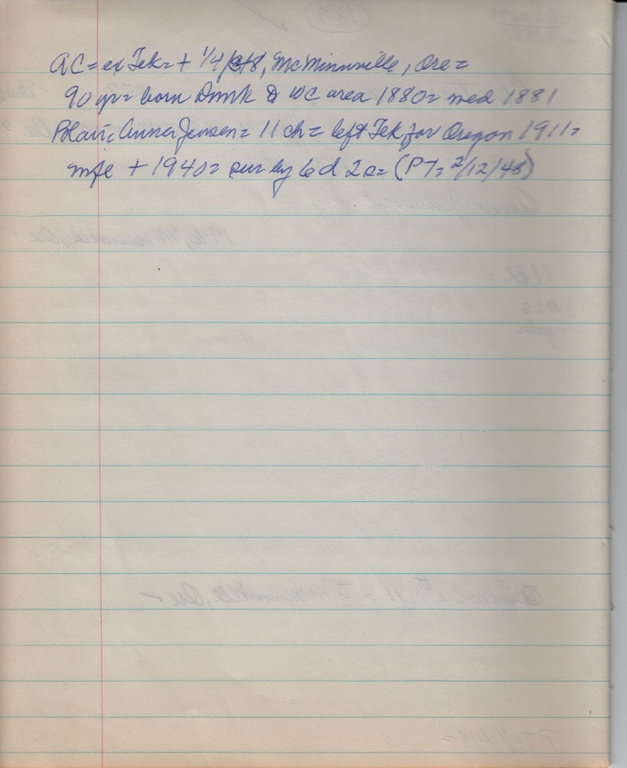 AC = ex Tek = + 1/4/48, McMinnville, Ore =
90 yr = born Dmrk & WC area 1880 = med 1881
Blair = Anna Jensen = 11 ch = left Tek for Oregon 1911 =
wife + 1940 = sur by 6 d 2 s = (PT = 2/12/48)